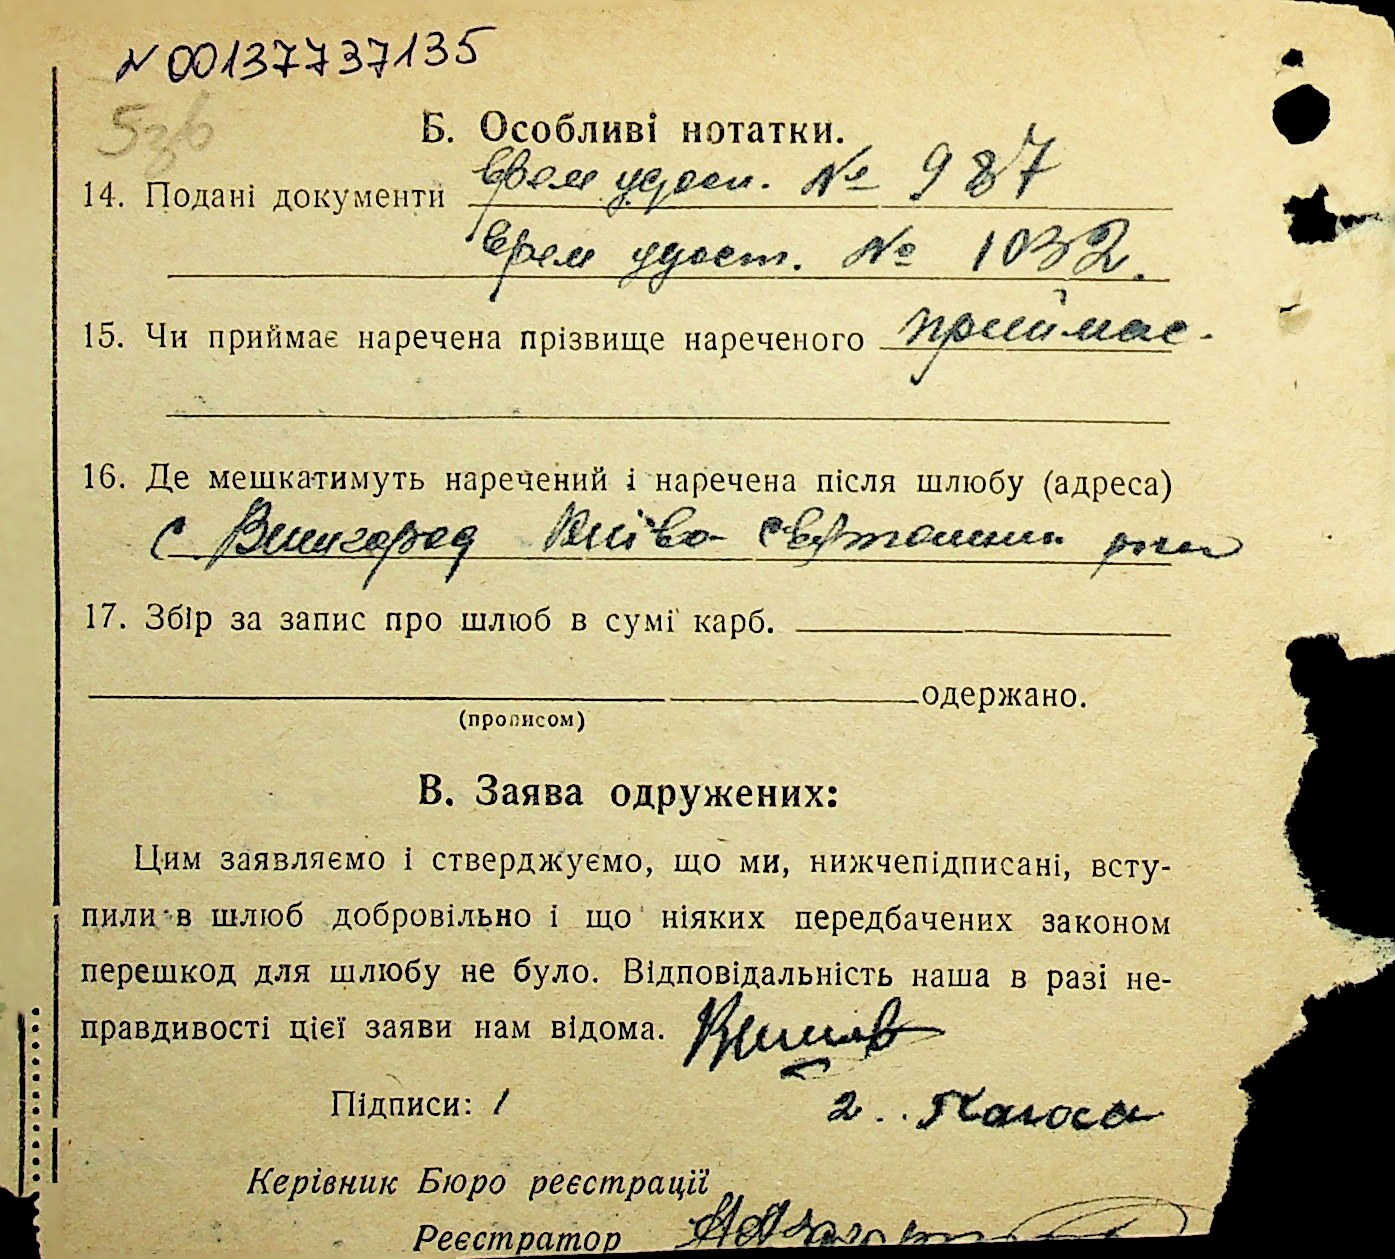 N 00137737135
5зв
Б. Особливі нотатки.
14. Подані документи Врем удост. № 987
Врем удост. № 1032.
15. Чи приймає наречена прізвище нареченого приймає.
16. Де мешкатимуть наречений і наречена після шлюбу (адреса)
с Вишгород Київо Святошин
17. Збір за запис про шлюб в сумі карб.
одержано.
(прописом)
В. Заява одружених:
Цим заявляємо і стверджуємо, що ми, нижчепідписані, всту-
пили в шлюб добровільно і що ніяких передбачених законом
перешкод для шлюбу не було. Відповідальність наша в разі не-
правдивості цієї заяви нам відома.
Підписи: 1
2.
Керівник Бюро реєстрації
Реєстратор